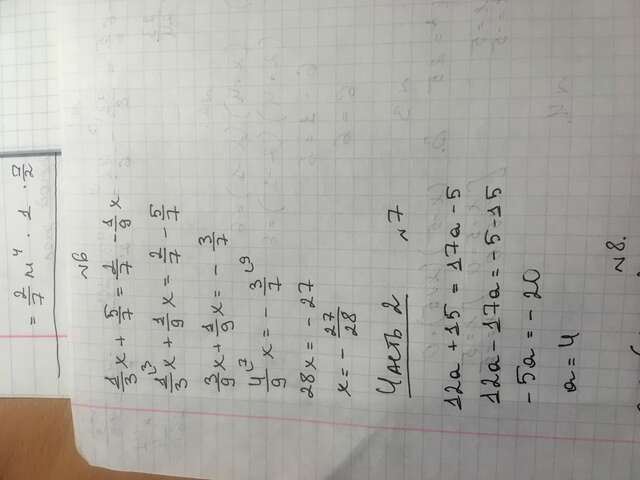 = 2/7 m⁴ · 1 · 7/2
№6
1/3 x + 5/7 = 2/7 - 1/9 x
1/3 ⌞3 x + 1/9 x = 2/7 - 5/7
3/9 x + 1/9 x = - 3/7
4/9 ⌞7 x = - 3/7 ⌞9
28x = - 27
x = - 27/28
Часть 2 №7
12a + 15 = 17a - 5
12a - 17a = -5 - 15
- 5a = - 20
a = 4
№8.